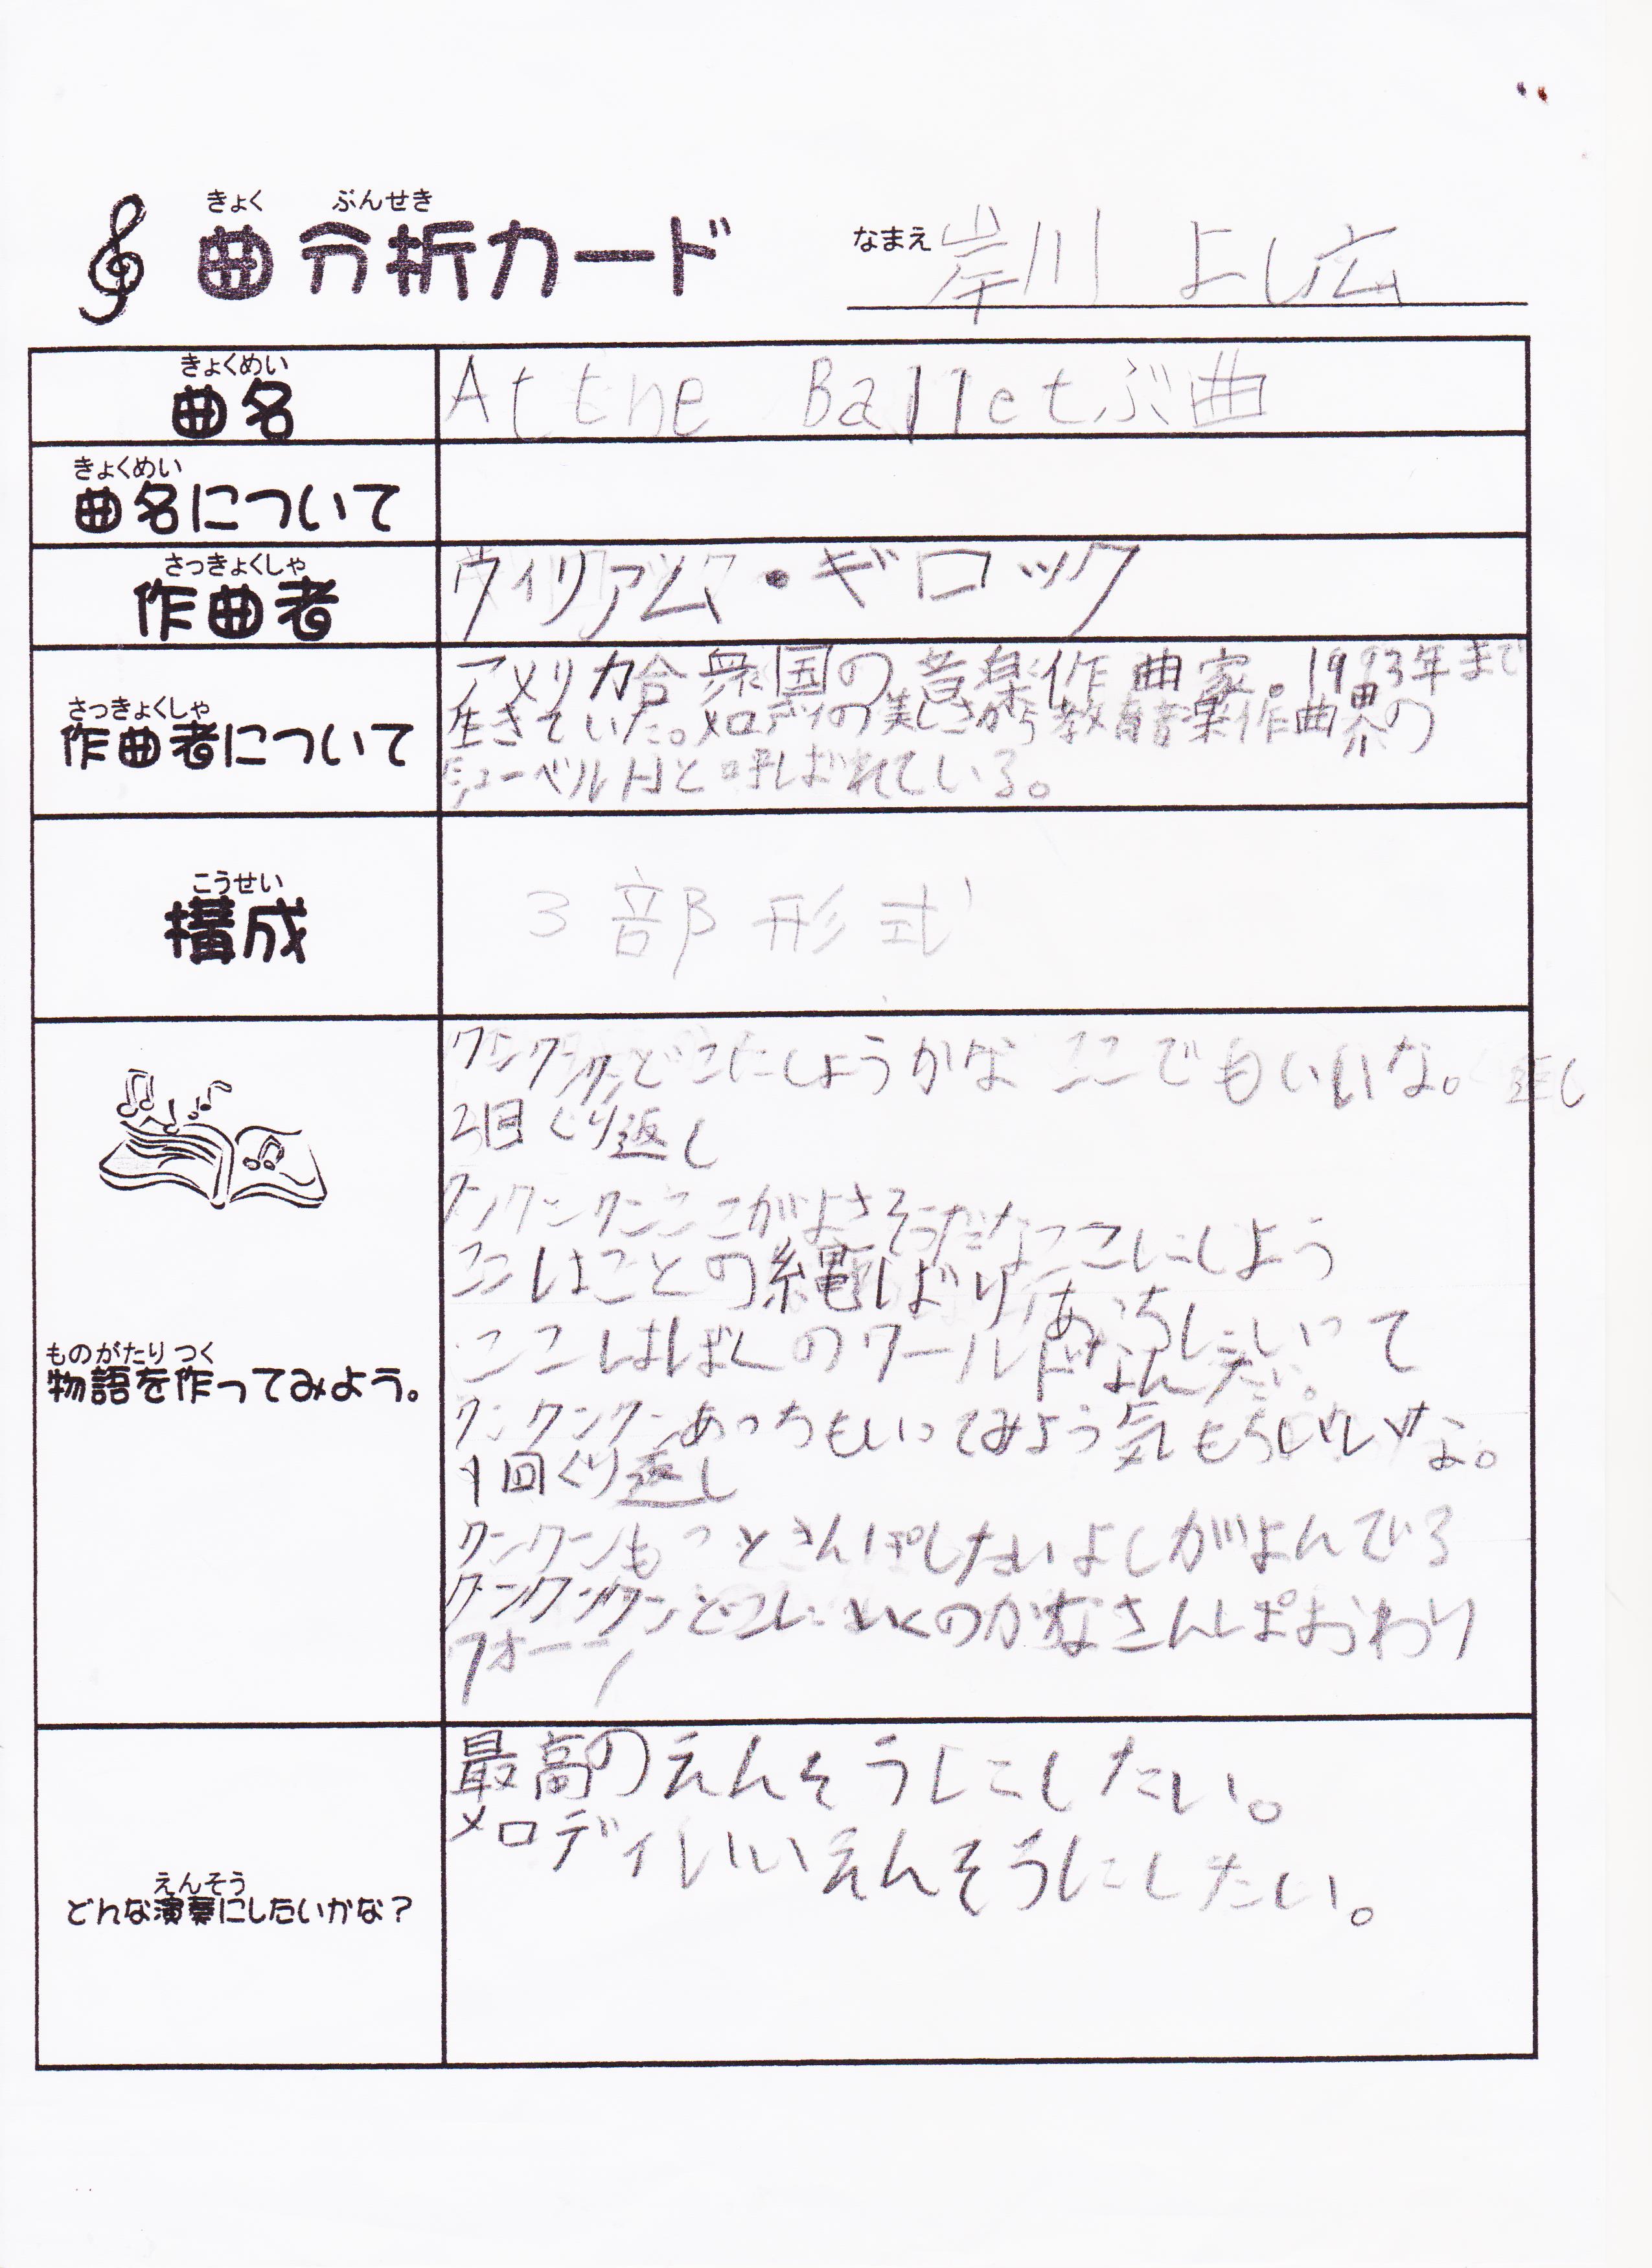 きょく ぶんせき
曲分析カード
なまえ 岸川 よし広
きょくめい
曲名
At the Ballet ぶ曲
きょくめい
曲名について
さっきょくしゃ
作曲者
ウィリアム・ギロック
さっきょくしゃ
作曲者について
アメリカ合衆国の音楽作曲家。1993年まで
生きていた。メロディの美しさから教育音楽作曲界の
シューベルトと呼ばれている。
こうせい
構成
3部形式
ものがたり つく
物語を作ってみよう。
クンクンクンどこにしようかな ここでもいいな。
2回くり返し
クンクンクンここがよさそうだなここにしよう
ここはことの縄ばりあっちにいって
ここはぼくのワールドなんだい。
クンクンクンあっちもいってみよう気もちいいな。
1回くり返し
クンクンもっとさんぽしたいよしがよんでる
クンクンクンどこにいくのかなさんぽおわり
ワオーン
えんそう
どんな演奏にしたいかな？
最高のえんそうにしたい。
メロディいいえんそうにしたい。